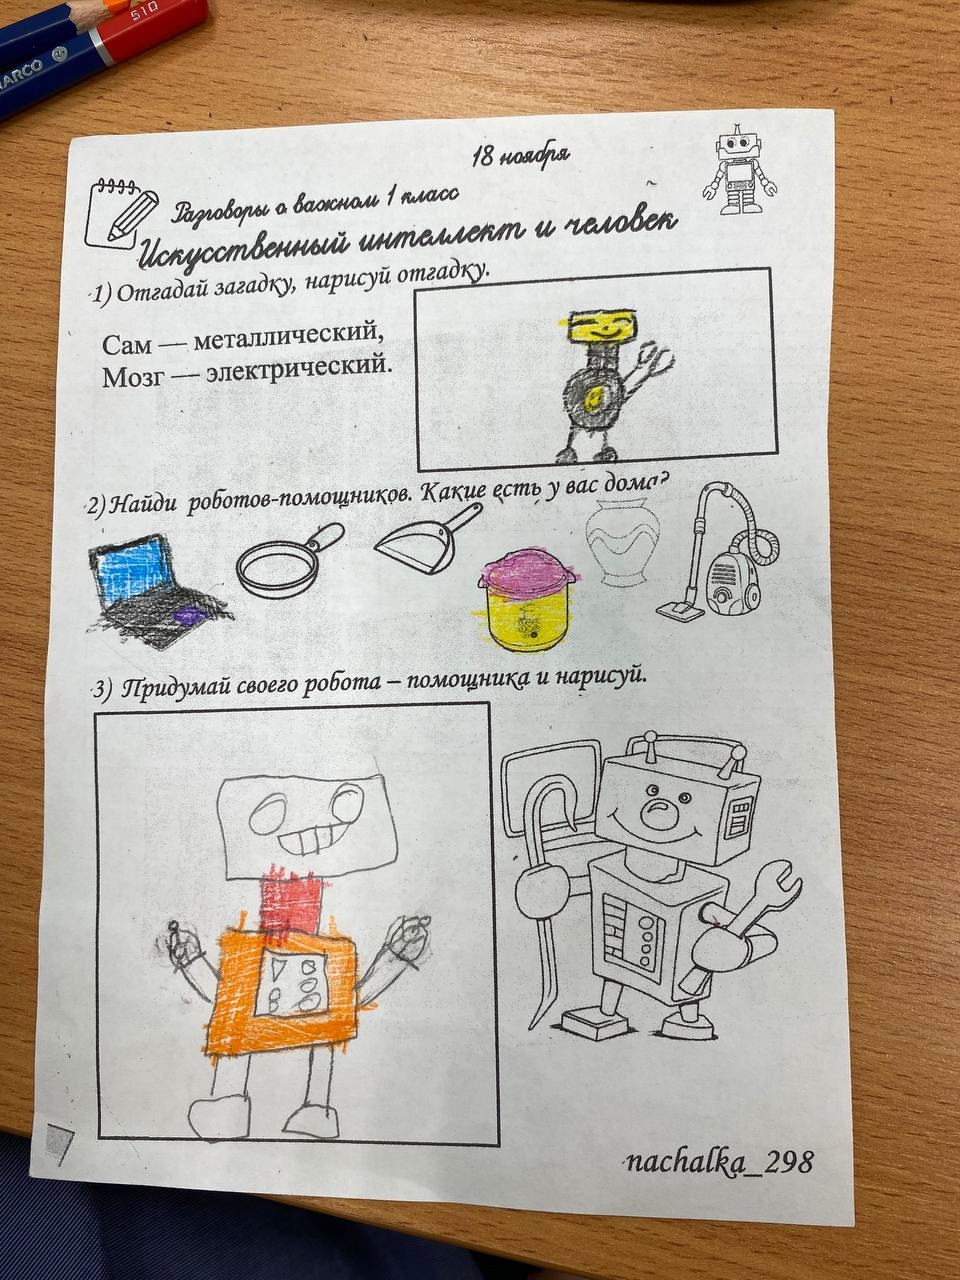 510
MARCO
18 ноября
Разговоры о важном 1 класс
Искусственный интеллект и человек
1) Отгадай загадку, нарисуй отгадку.
Сам — металлический,
Мозг — электрический.
2) Найди роботов-помощников. Какие есть у вас дома?
3) Придумай своего робота – помощника и нарисуй.
nachalka_298